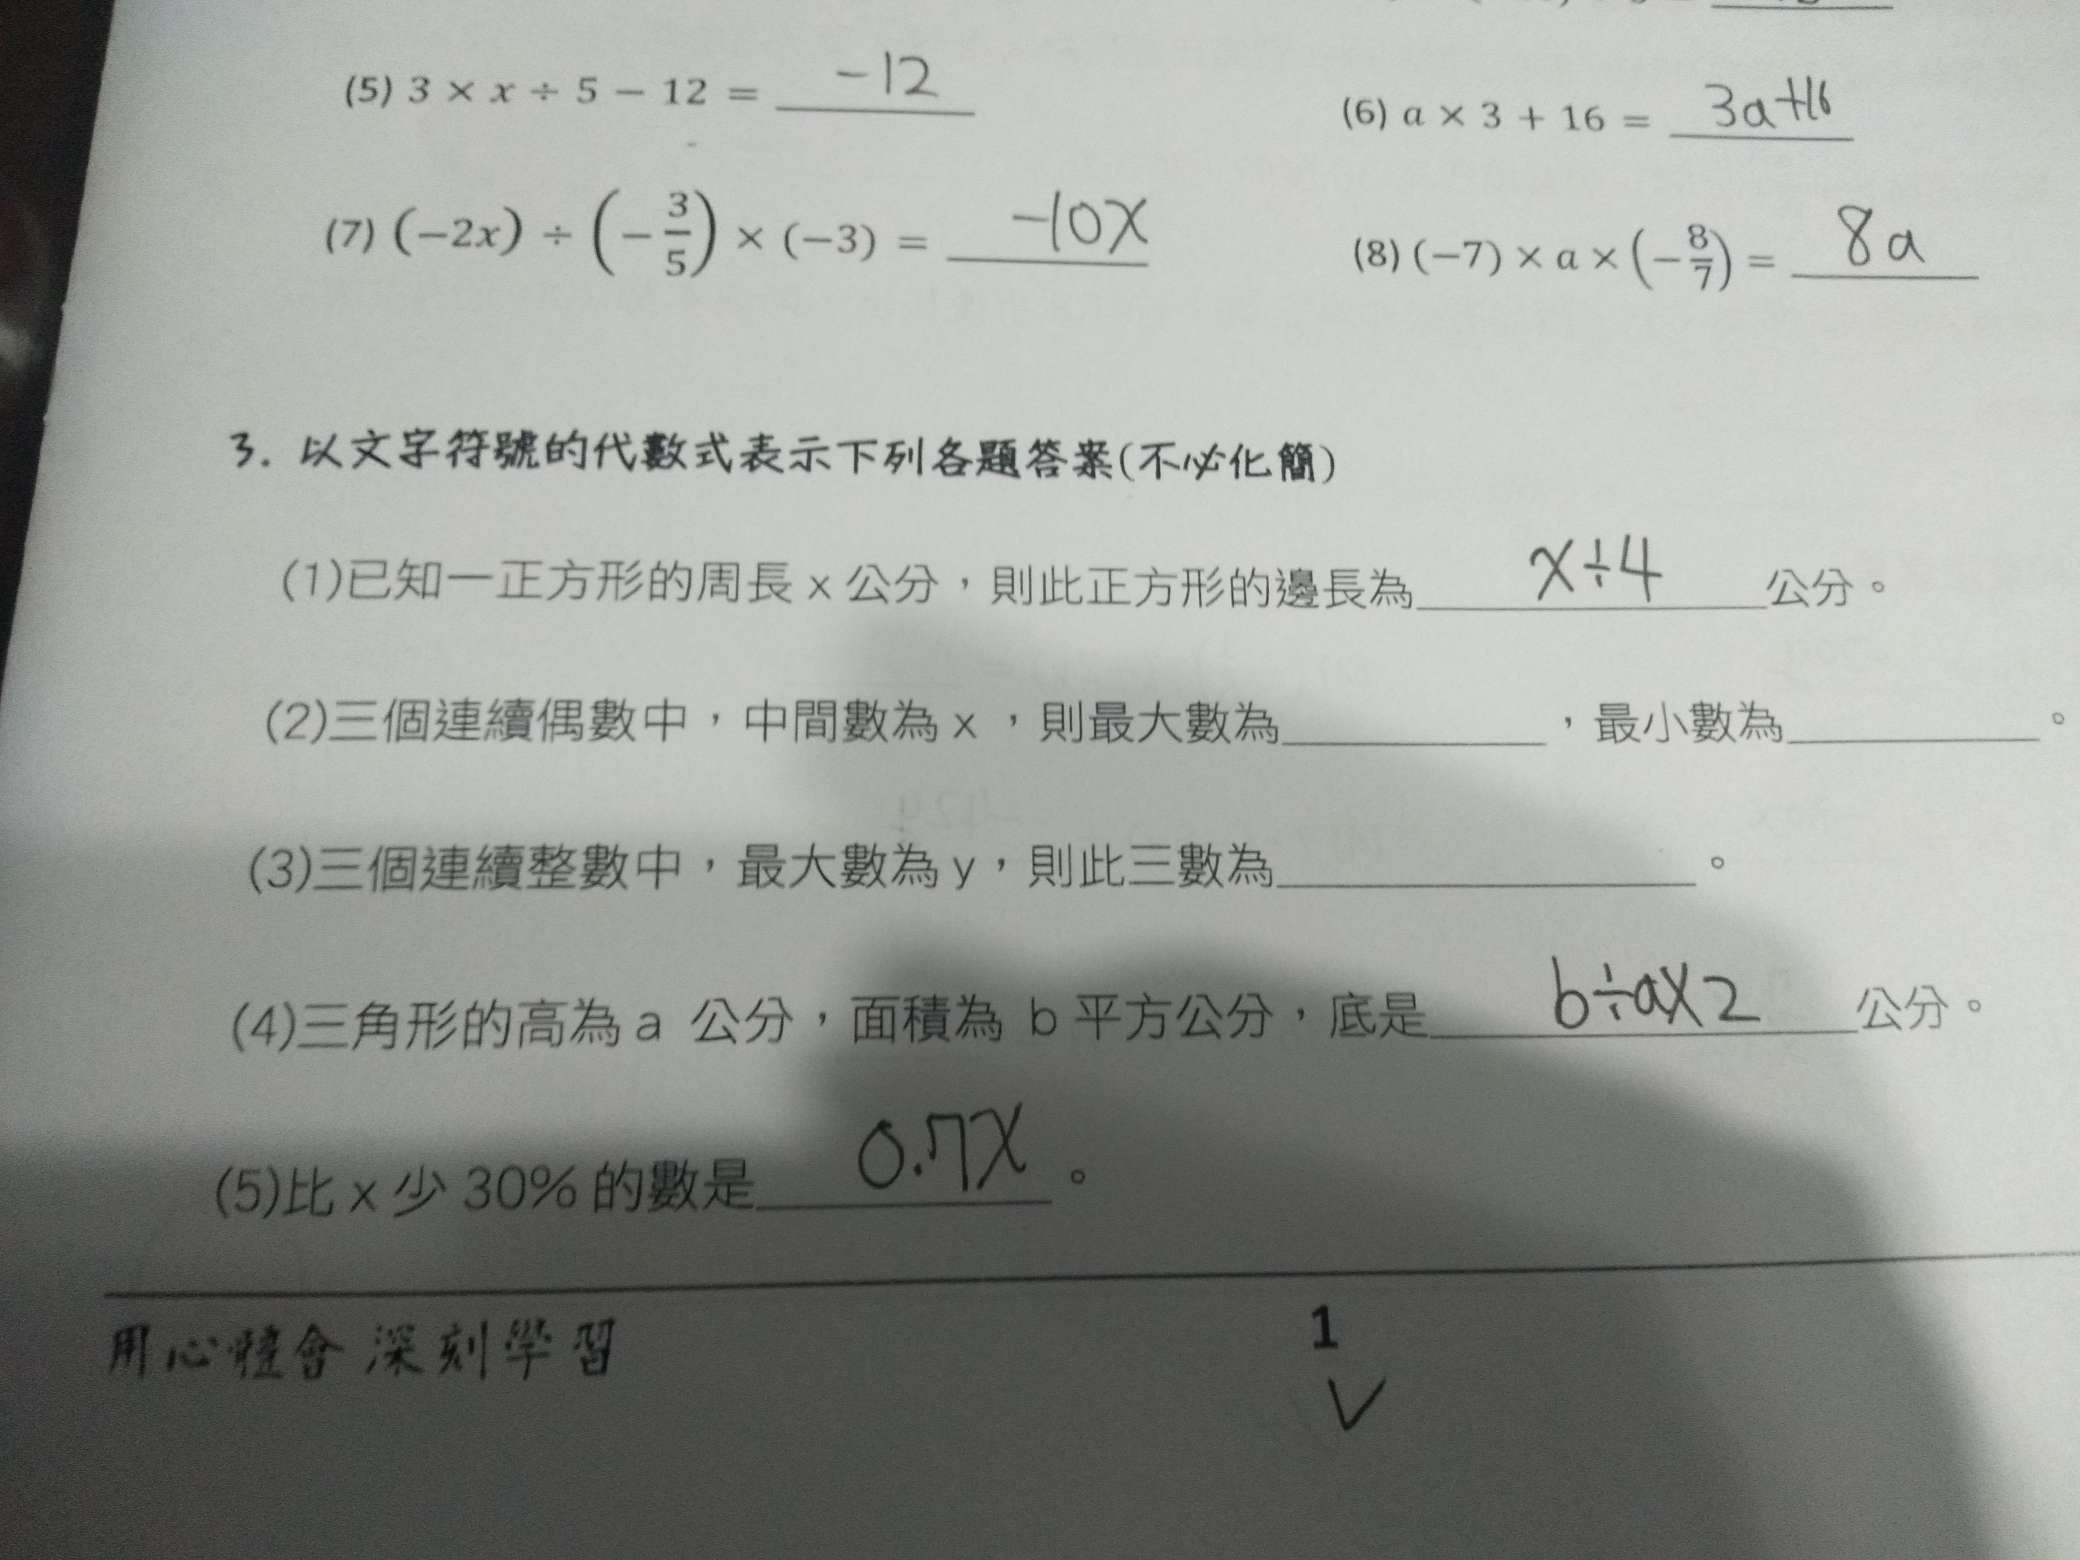 (5) 3 × x ÷ 5 − 12 = -12
(6) a × 3 + 16 = 3a+16
(7) (−2x) ÷ (−3/5) × (−3) = -10x
(8) (−7) × a × (−8/7) = 8a
3. 以文字符號的代數式表示下列各題答案(不必化簡)
(1)已知一正方形的周長 x 公分，則此正方形的邊長為 x÷4 公分。
(2)三個連續偶數中，中間數為 x ，則最大數為________，最小數為________。
(3)三個連續整數中，最大數為 y，則此三數為________。
(4)三角形的高為 a 公分，面積為 b 平方公分，底是 b÷a×2 公分。
(5)比 x 少 30% 的數是 0.7x 。
用心體會 深刻學習
1